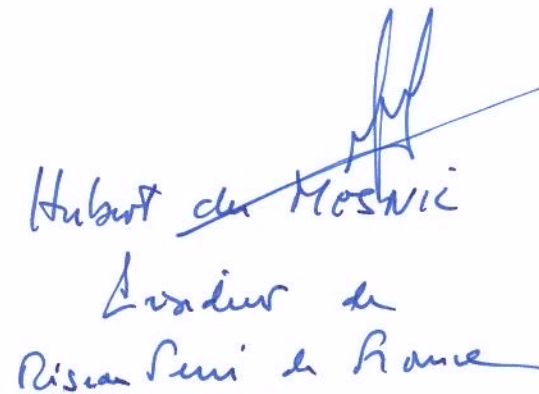 Hubert du MESNIL
Président de
Réseau Ferré de France